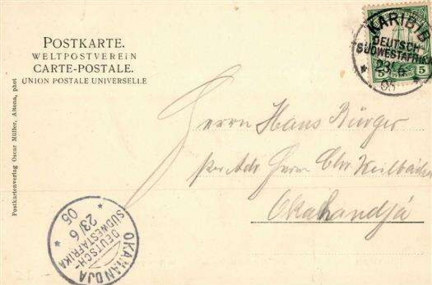 POSTKARTE.
WELTPOSTVEREIN
CARTE-POSTALE.
UNION POSTALE UNIVERSELLE
KARIBIB
DEUTSCH-
SÜDWESTAFRIKA
23/6
05
5 5
Postkartenverlag Oscar Müller, Altona,
Herrn Hans Bürger
Herrn Chr
Okahandja
OKAHANDJA
DEUTSCH-
SÜDWESTAFRIKA
23/6
05